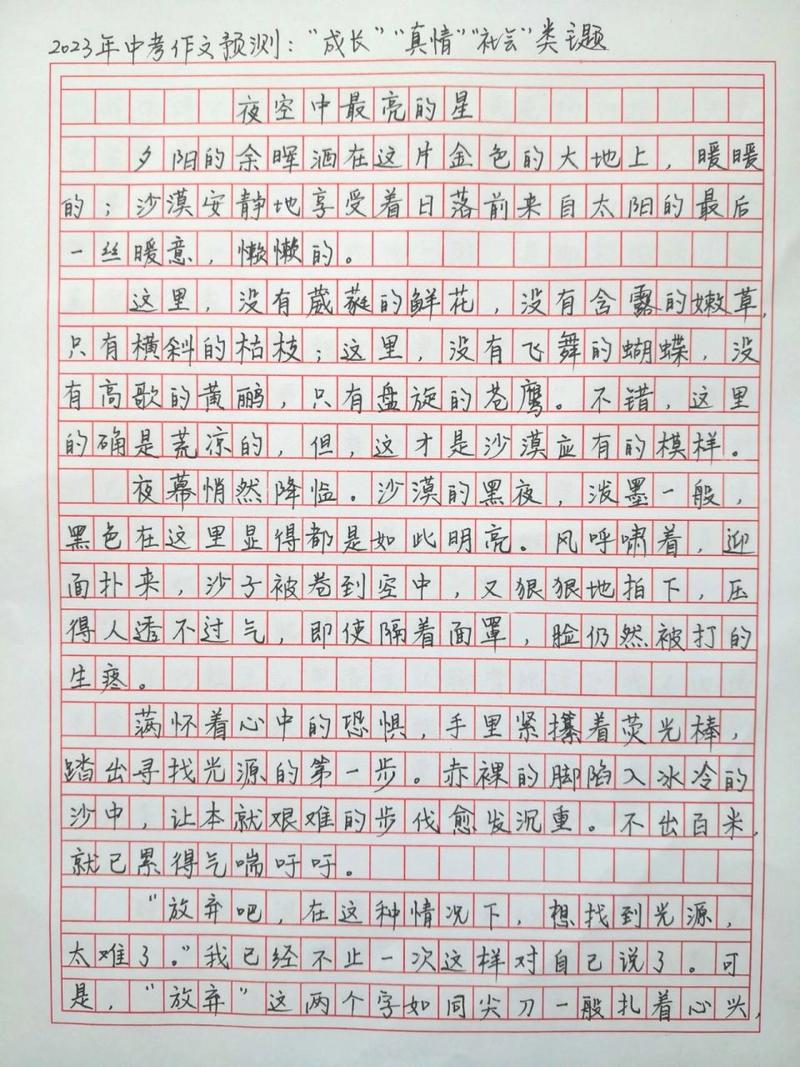 2023年中考作文预测：“成长”“真情”“社会”类主题
夜空中最亮的星
夕阳的余晖洒在这片金色的大地上，暖暖
的；沙漠安静地享受着日落前来自太阳的最后
一丝暖意，懒懒的。
这里，没有葳蕤的鲜花，没有含露的嫩草，
只有横斜的枯枝；这里，没有飞舞的蝴蝶，没
有高歌的黄鹂，只有盘旋的苍鹰。不错，这里
的确是荒凉的，但，这才是沙漠应有的模样。
夜幕悄然降临。沙漠的黑夜，泼墨一般，
黑色在这里显得都是如此明亮。风呼啸着，迎
面扑来，沙子被卷到空中，又狠狠地拍下，压
得人透不过气，即使隔着面罩，脸仍然被打的
生疼。
满怀着心中的恐惧，手里紧攥着荧光棒，
踏出寻找光源的第一步。赤裸的脚陷入冰冷的
沙中，让本就艰难的步伐愈发沉重。不出百米，
就已累得气喘吁吁。
“放弃吧，在这种情况下，想找到光源，
太难了。”我已经不止一次这样对自己说了。可
是，“放弃”这两个字如同尖刀一般扎着心头，